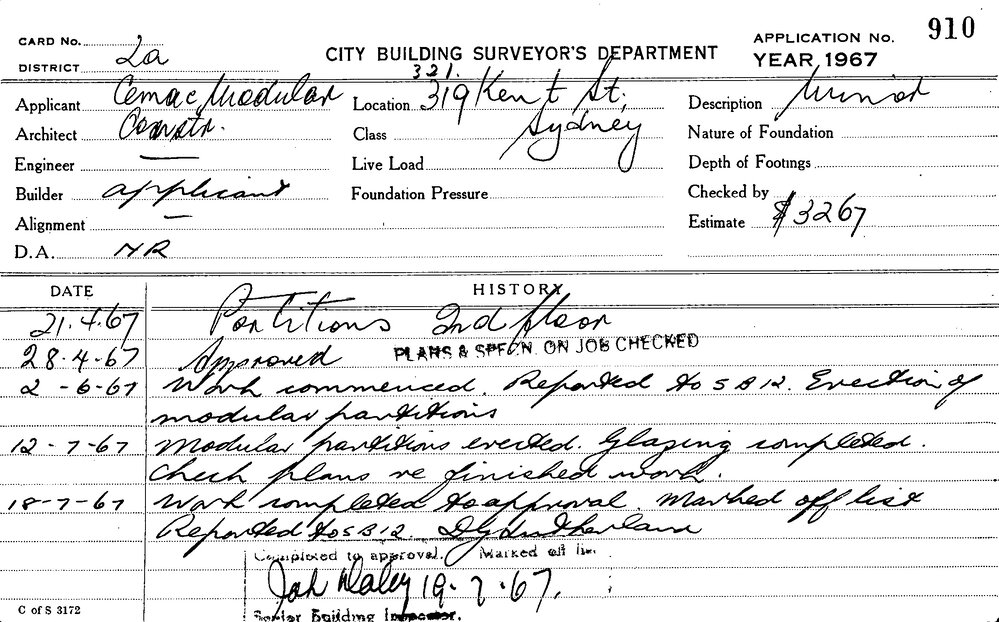 CARD No.
DISTRICT 2a
CITY BUILDING SURVEYOR'S DEPARTMENT
APPLICATION No. 910
YEAR 1967
Applicant Cemac Modular
Architect Constr.
Engineer —
Builder applicant
Alignment –
D.A. NR
321.
Location 319 Kent St,
Class Sydney
Live Load
Foundation Pressure
Description Minor
Nature of Foundation
Depth of Footings
Checked by
Estimate $3267
DATE HISTORY
21.4.67 Partitions 2nd floor
28.4-67 Approved PLANS & SPFCN. ON JOB CHECKED
2-6-67 Work commenced. Reported to SB12. Erection of
modular partitions
12-7-67 Modular partitions erected. Glazing completed.
Check plans re finished work.
18-7-67 Work completed to approval. Marked off list
Reported to SB12. Sutherland
Completed to approval. Marked off
Daley 19.7.67.
Senior Building Inspector.
C of S 3172